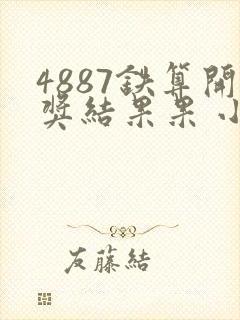 4887鉄算開
奖結果果小
友藤結